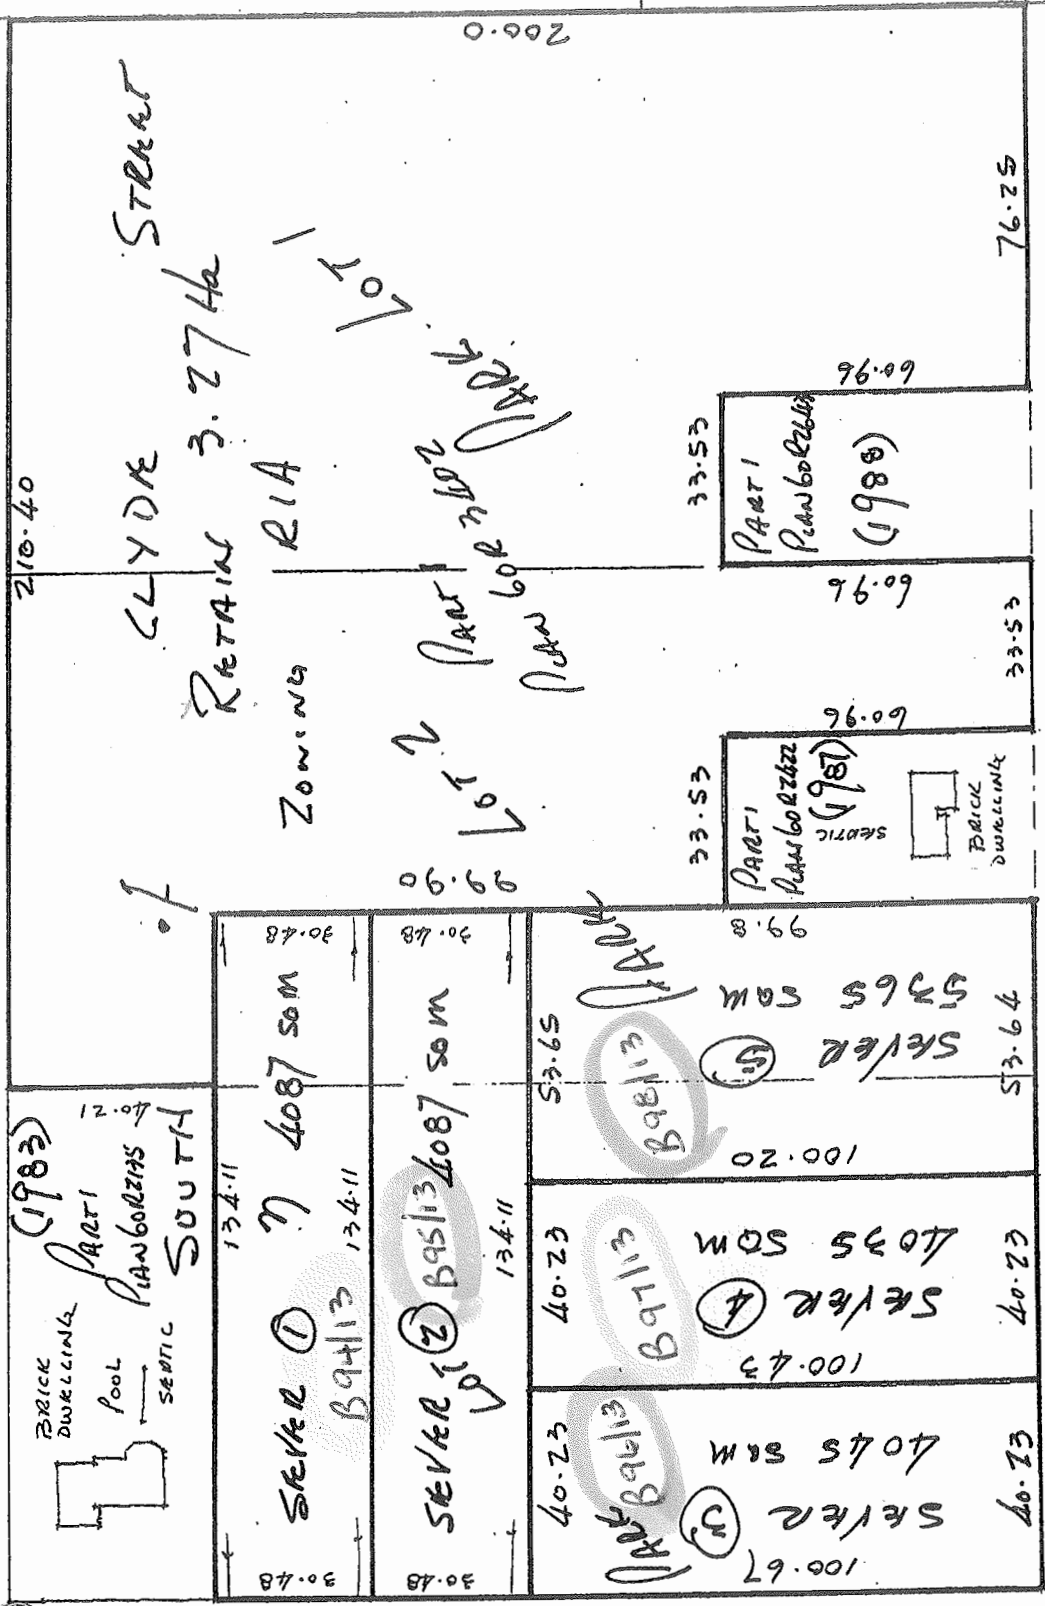 200.0
210.40
CLYDE STREET
RETAIN 3.27 Ha
ZONING R1A
LOT 1
LOT 2
PART 1 PARK
PLAN 60R
76.25
60.96
33.53
PART 1
PLAN 60R2643
(1988)
60.96
33.53
60.96
33.53
PART 1
PLAN 60R2422
(1987)
SEPTIC
BRICK
DWELLING
99.90
(1983)
PART 1
PLAN 60R2175
40.21
SOUTH
BRICK
DWELLING
POOL
SEPTIC
134.11
30.48
SEVER 1 4087 SQM
B94/13
134.11
30.48
30.48
SEVER 2 4087 SQM
LOT
B95/13
134.11
30.48
53.65
PARK
B98/13
SEVER 5
5365 SQM
99.8
53.64
100.20
40.23
B97/13
SEVER 4
4035 SQM
40.23
100.43
40.23
PARK
B96/13
SEVER 3
4045 SQM
40.23
100.67